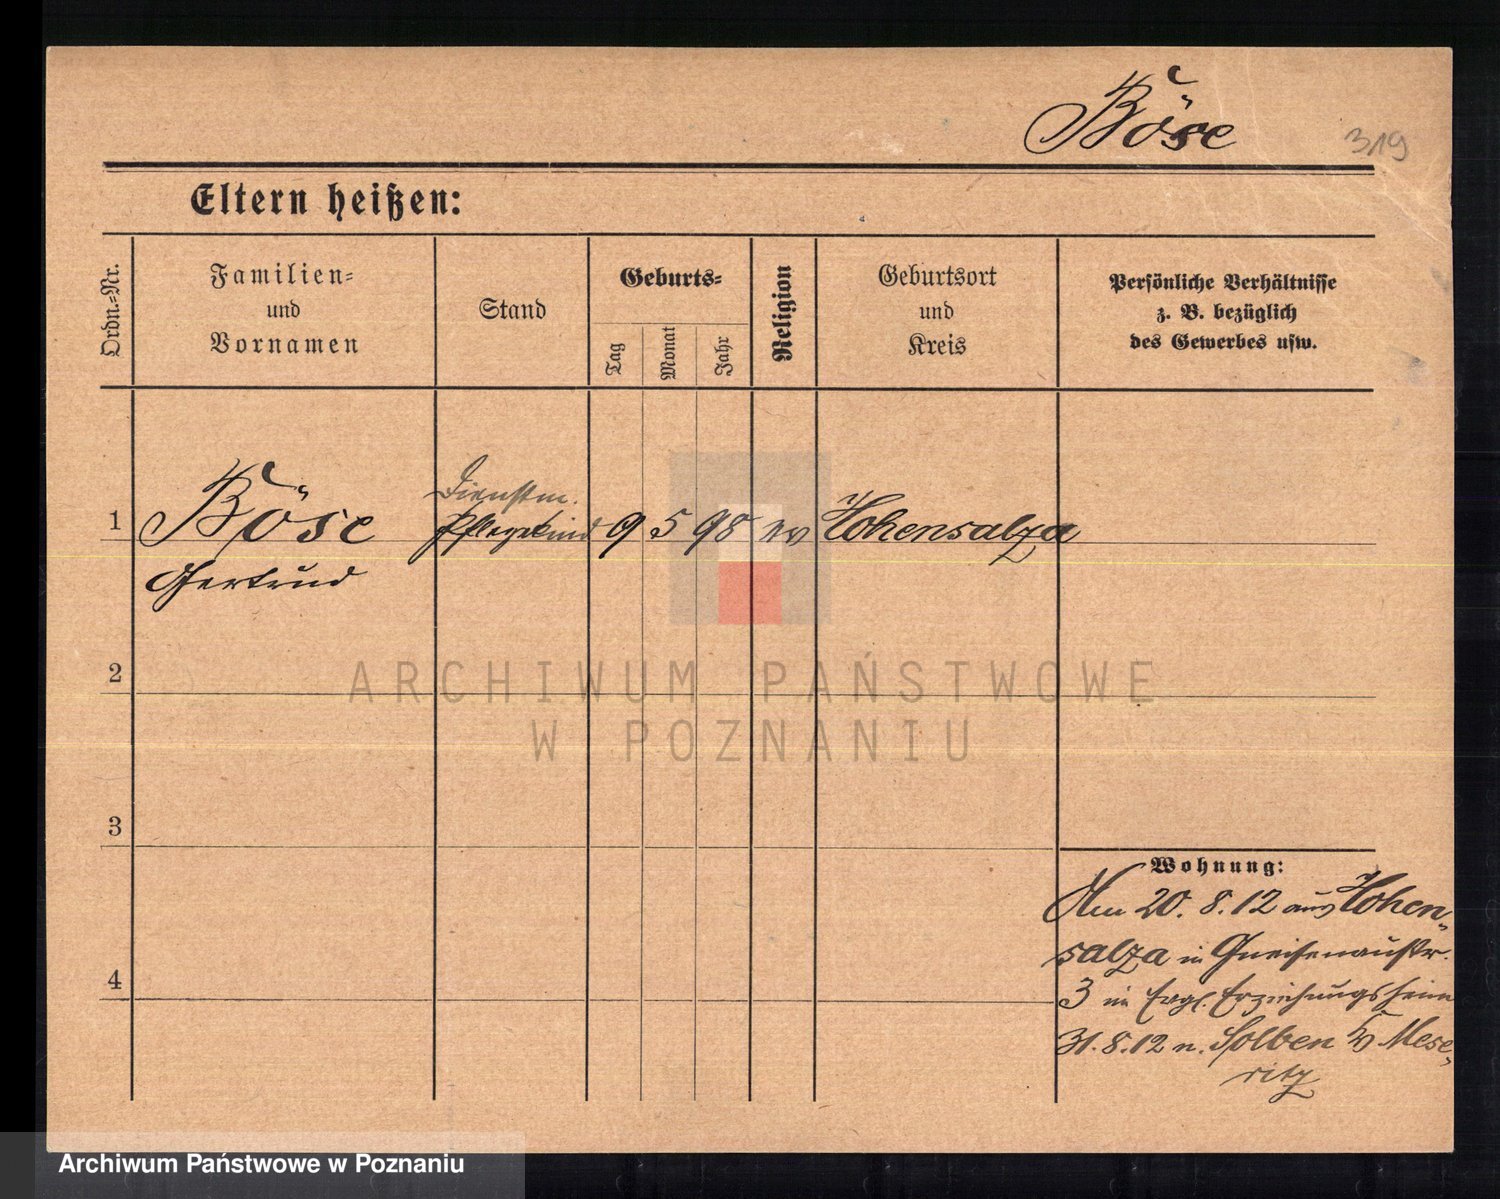 Böse
319
Eltern heißen:
Ordn.-Nr.
Familien-
und
Vornamen
Stand
Geburts-
Tag
Monat
Jahr
Religion
Geburtsort
und
Kreis
Persönliche Verhältnisse
z. B. bezüglich
des Gewerbes usw.
1
Böse
Gertrud
Dienstm.
Pflegekind
9
5
98
ev
Hohensalza
2
3
4
Wohnung:
Am 20. 8. 12 aus Hohen-
salza in Gneisenaustr.
3 im Evgl. Erziehungsheim
31. 8. 12 n. Solben Kr Mese-
ritz
ARCHIWUM PAŃSTWOWE
W POZNANIU
Archiwum Państwowe w Poznaniu